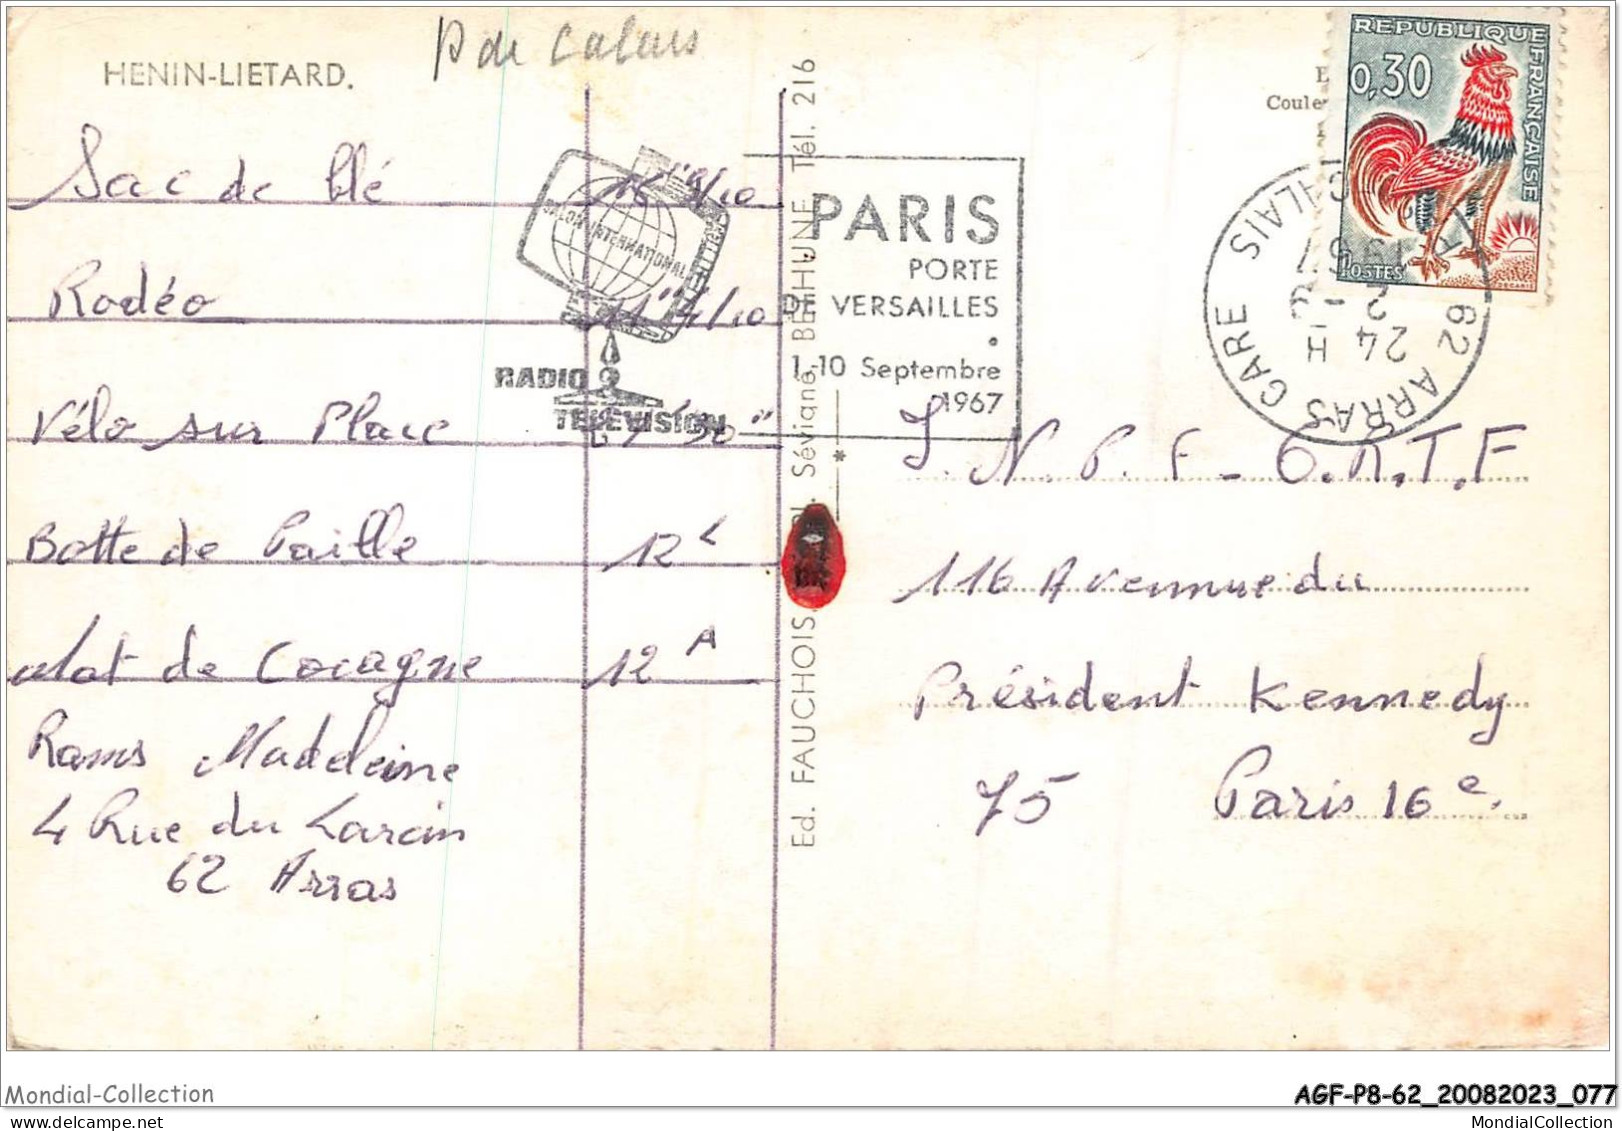 HENIN-LIETARD.
P de Calais
Sac de blé 16"9/10
Rodéo 11"4/10
Vélo sur Place
Botte de Paille 12 L
Mat de Cocagne 12 A
Rams Madeleine
4 Rue du Larcin
62 Arras
SALON INTERNATIONAL
RADIO
TELEVISION
PARIS
PORTE
DE VERSAILLES
1-10 Septembre
1967
Ed. FAUCHOIS
Sévigné BETHUNE Tél. 216
Coule
REPUBLIQUE FRANÇAISE
0,30
POSTES
62 ARRAS GARE
CALAIS
24 H
J. N. P. F - O. R. T. F
116 Avennue du
Président Kennedy
75 Paris 16e.
Mondial-Collection
AGF-P8-62_20082023_077
MondialCollection
MondialCollection